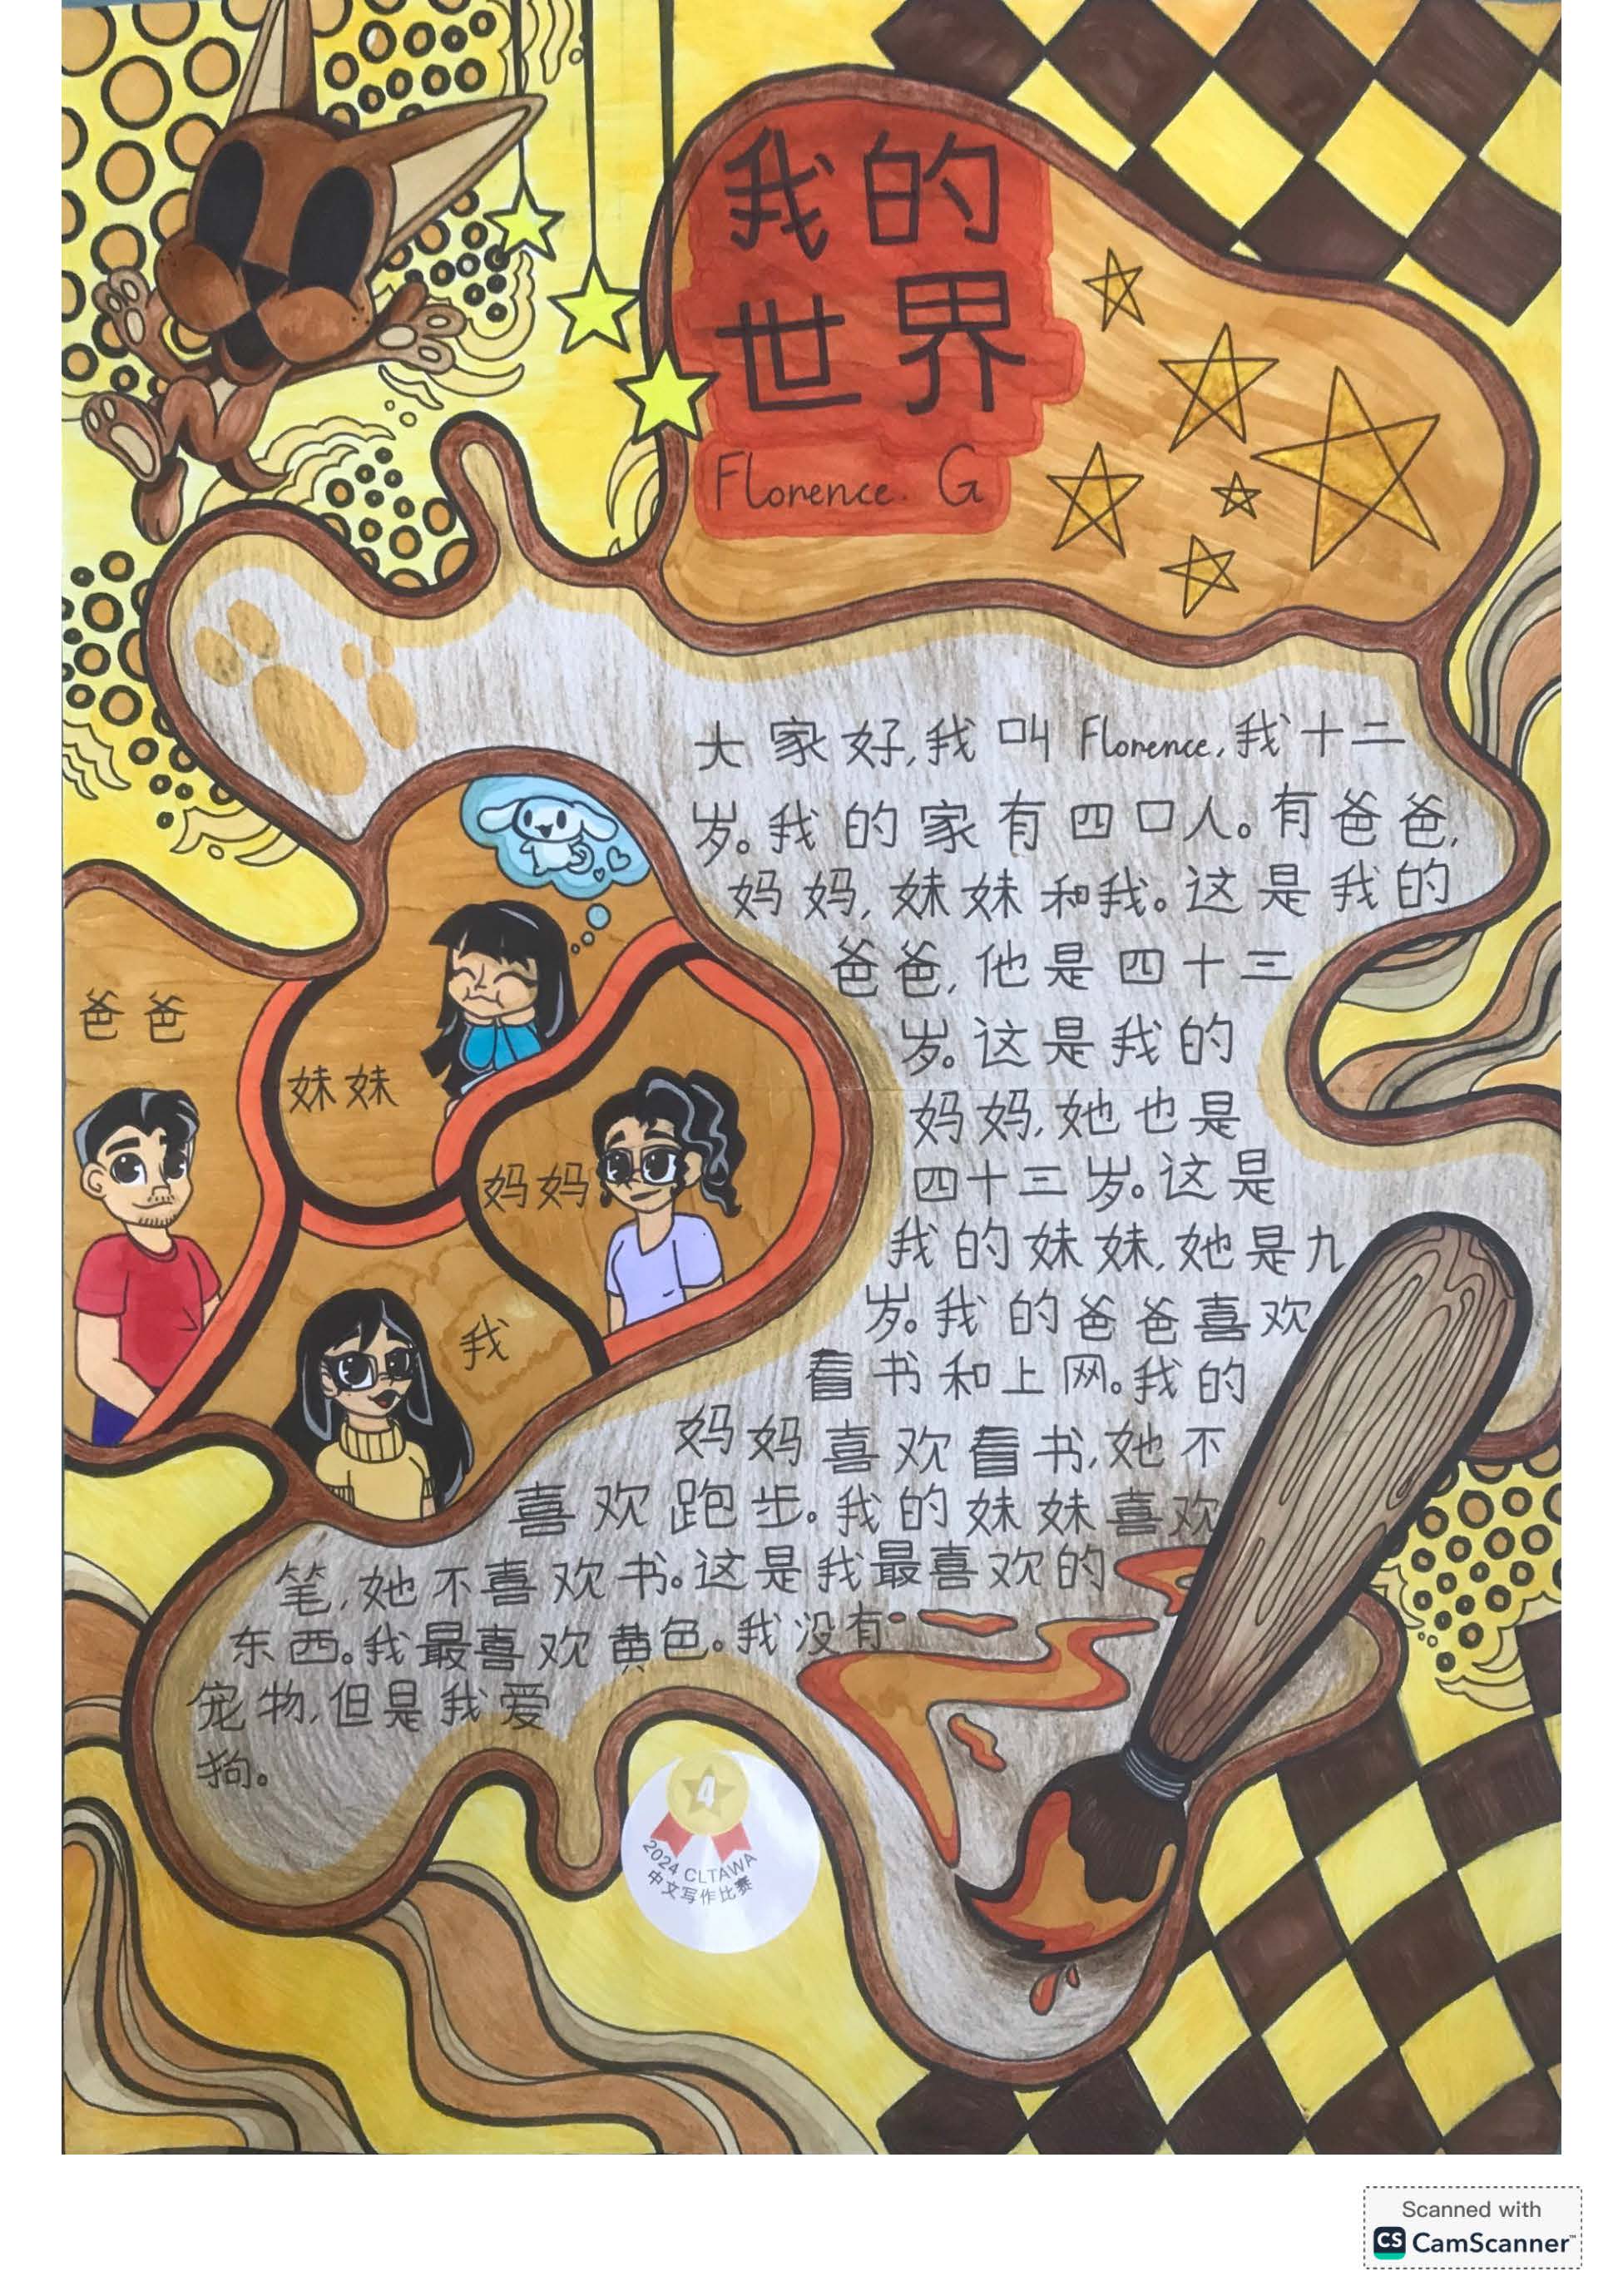 我的
世界
Florence. G
大家好,我叫Florence,我十二
岁。我的家有四口人。有爸爸,
妈妈,妹妹和我。这是我的
爸爸,他是四十三
岁。这是我的
妈妈,她也是
四十三岁。这是
我的妹妹,她是九
岁。我的爸爸喜欢
看书和上网。我的
妈妈喜欢看书,她不
喜欢跑步。我的妹妹喜欢
笔,她不喜欢书。这是我最喜欢的
东西。我最喜欢黄色。我没有
宠物,但是我爱
狗。
爸爸
妹妹
妈妈
我
4
2024 CLTAWA
中文写作比赛
Scanned with
CS CamScanner™